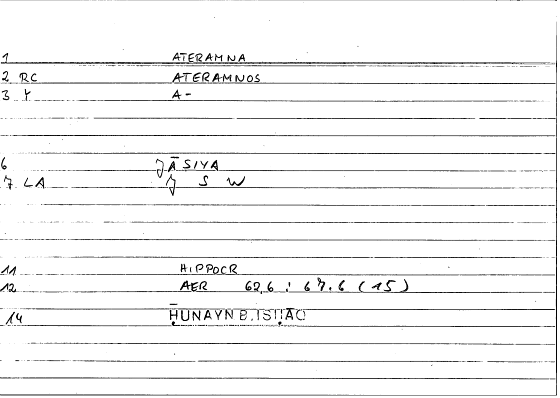 1 ATERAMNA
2 RC ATERAMNOS
3 A-
6 JĀSIYA
7 LA J S W
11 HIPPOCR
12 AER 62,6 : 67.6 (15)
14 ḤUNAYN B. ISḤĀQ